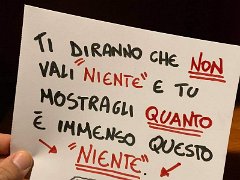 TI DIRANNO CHE NON
VALI "NIENTE" E TU
MOSTRAGLI QUANTO
È IMMENSO QUESTO
"NIENTE".